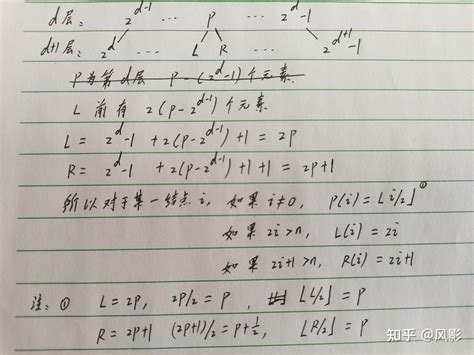 d层: 2^{d-1} ... P ... 2^d-1
d+1层: 2^d ... L R ... 2^{d+1}-1
P为第d层 P-(2^d-1)个元素
L前有 2(P-2^{d-1})个元素
L = 2^d-1 +2(P-2^{d-1})+1 = 2P
R = 2^d-1 +2(P-2^{d-1})+1+1 = 2P+1
所以对于某一结点i, 如果 i≠0, P(i)=⌊i/2⌋^①
如果 2i>n, L(i)=2i
如果 2i+1>n, R(i)=2i+1
注: ① L=2P, 2P/2=P, ⌊L/2⌋=P
R=2P+1 (2P+1)/2=P+1/2, ⌊R/2⌋=P
知乎 @风影